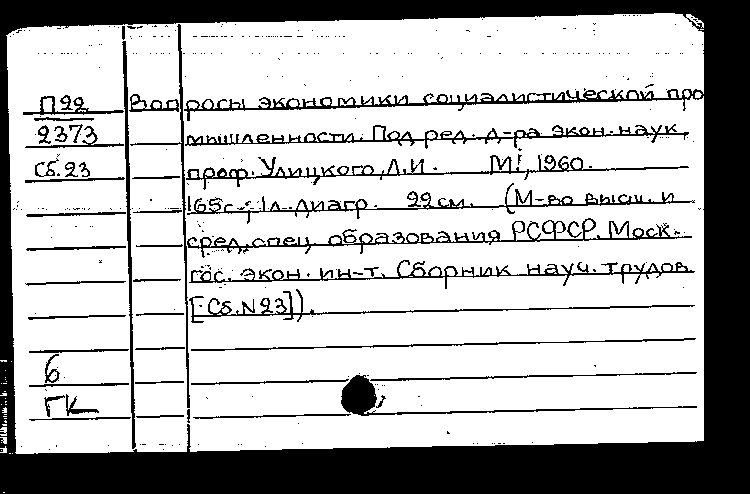 П22 Вопросы экономики социалистической про
2373 мышленности. Под ред. д-ра экон. наук,
Сб.23 проф. Улицкого, Л.И. М., 1960.
165с.; 1л.диагр. 22см. (М-во высш. и
сред.спец. образования РСФСР. Моск.
гос. экон. ин-т. Сборник науч. трудов
[Сб.N23]).
6
ГК